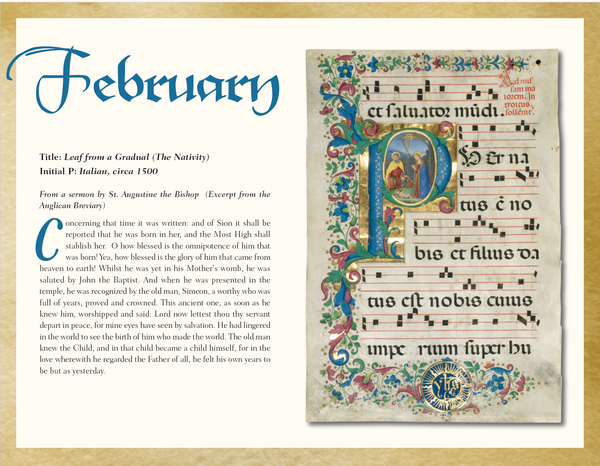 February
Title: Leaf from a Gradual (The Nativity)
Initial P: Italian, circa 1500
From a sermon by St. Augustine the Bishop (Excerpt from the
Anglican Breviary)
Concerning that time it was written: and of Sion it shall be
reported that he was born in her, and the Most High shall
stablish her. O how blessed is the omnipotence of him that
was born! Yea, how blessed is the glory of him that came from
heaven to earth! Whilst he was yet in his Mother's womb, he was
saluted by John the Baptist. And when he was presented in the
temple, he was recognized by the old man, Simeon, a worthy who was
full of years, proved and crowned. This ancient one, as soon as he
knew him, worshipped and said: Lord now lettest thou thy servant
depart in peace, for mine eyes have seen by salvation. He had lingered
in the world to see the birth of him who made the world. The old man
knew the Child, and in that child became a child himself, for in the
love wherewith he regarded the Father of all, he felt his own years to
be but as yesterday.
et saluator mūdi.
Ad mis
sam ma
iorem. In
troitus.
P Uer na
tus ē no
bis et filius da
tus est nobis cuius
impe rium super hu